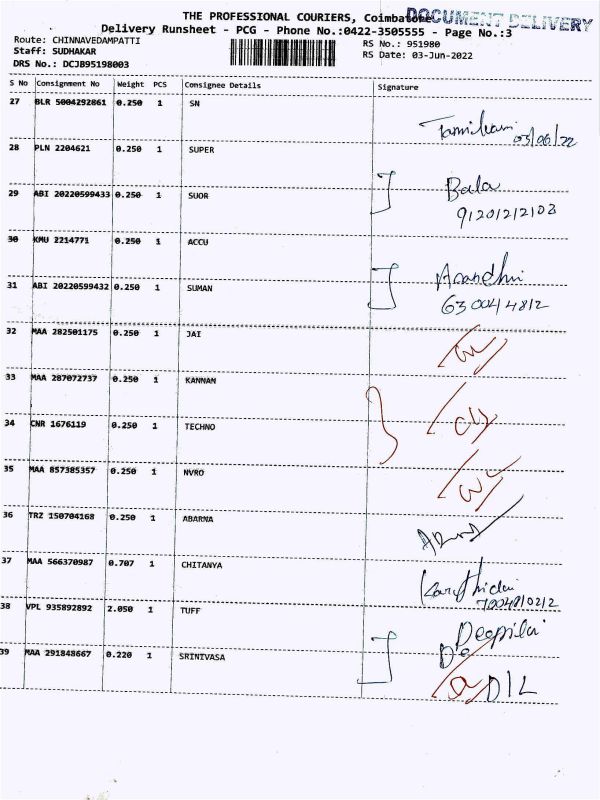 THE PROFESSIONAL COURIERS, Coimbatore
DOCUMENT DELIVERY
Delivery Runsheet - PCG - Phone No.:0422-3505555 - Page No.:3
Route: CHINNAVEDAMPATTI
RS No.: 951980
Staff: SUDHAKAR
RS Date: 03-Jun-2022
DRS No.: DCJB95198003
S No Consignment No Weight PCS Consignee Details Signature
27 BLR 5004292861 0.250 1 SN
03/06/22
28 PLN 2204621 0.250 1 SUPER
Bala
29 ABI 20220599433 0.250 1 SUOR
91201212103
30 KMU 2214771 0.250 1 ACCU
31 ABI 20220599432 0.250 1 SUMAN
630044812
32 MAA 282501175 0.250 1 JAI
33 MAA 287072737 0.250 1 KANNAN
34 CNR 1676119 0.250 1 TECHNO
35 MAA 857385357 0.250 1 NVRO
36 TRZ 150704168 0.250 1 ABARNA
37 MAA 566370987 0.707 1 CHITANYA
38 VPL 935892892 2.050 1 TUFF
39 MAA 291848667 0.220 1 SRINIVASA
D/L